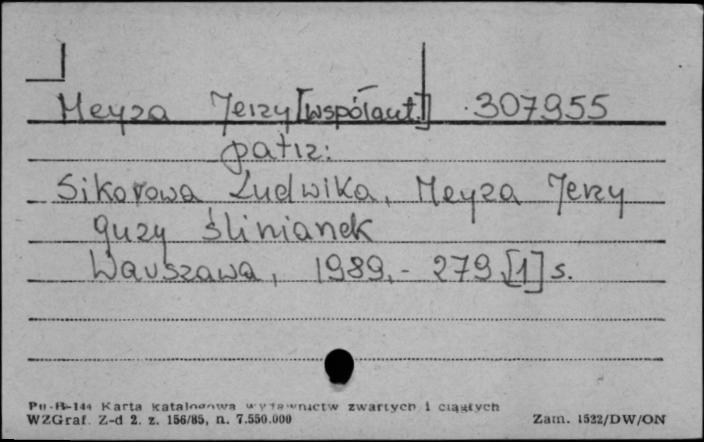 Meyza Jerzy [współaut.] 307955
patrz:
Sikorowa Ludwika, Meyza Jerzy
guzy ślinianek
Warszawa, 1989.- 279 [1] s.
Pu-B-144 Karta katalogowa wydawnictw zwartych i ciągłych
WZGraf. Z-d 2. z. 156/85, n. 7.550.000 Zam. 1522/DW/ON